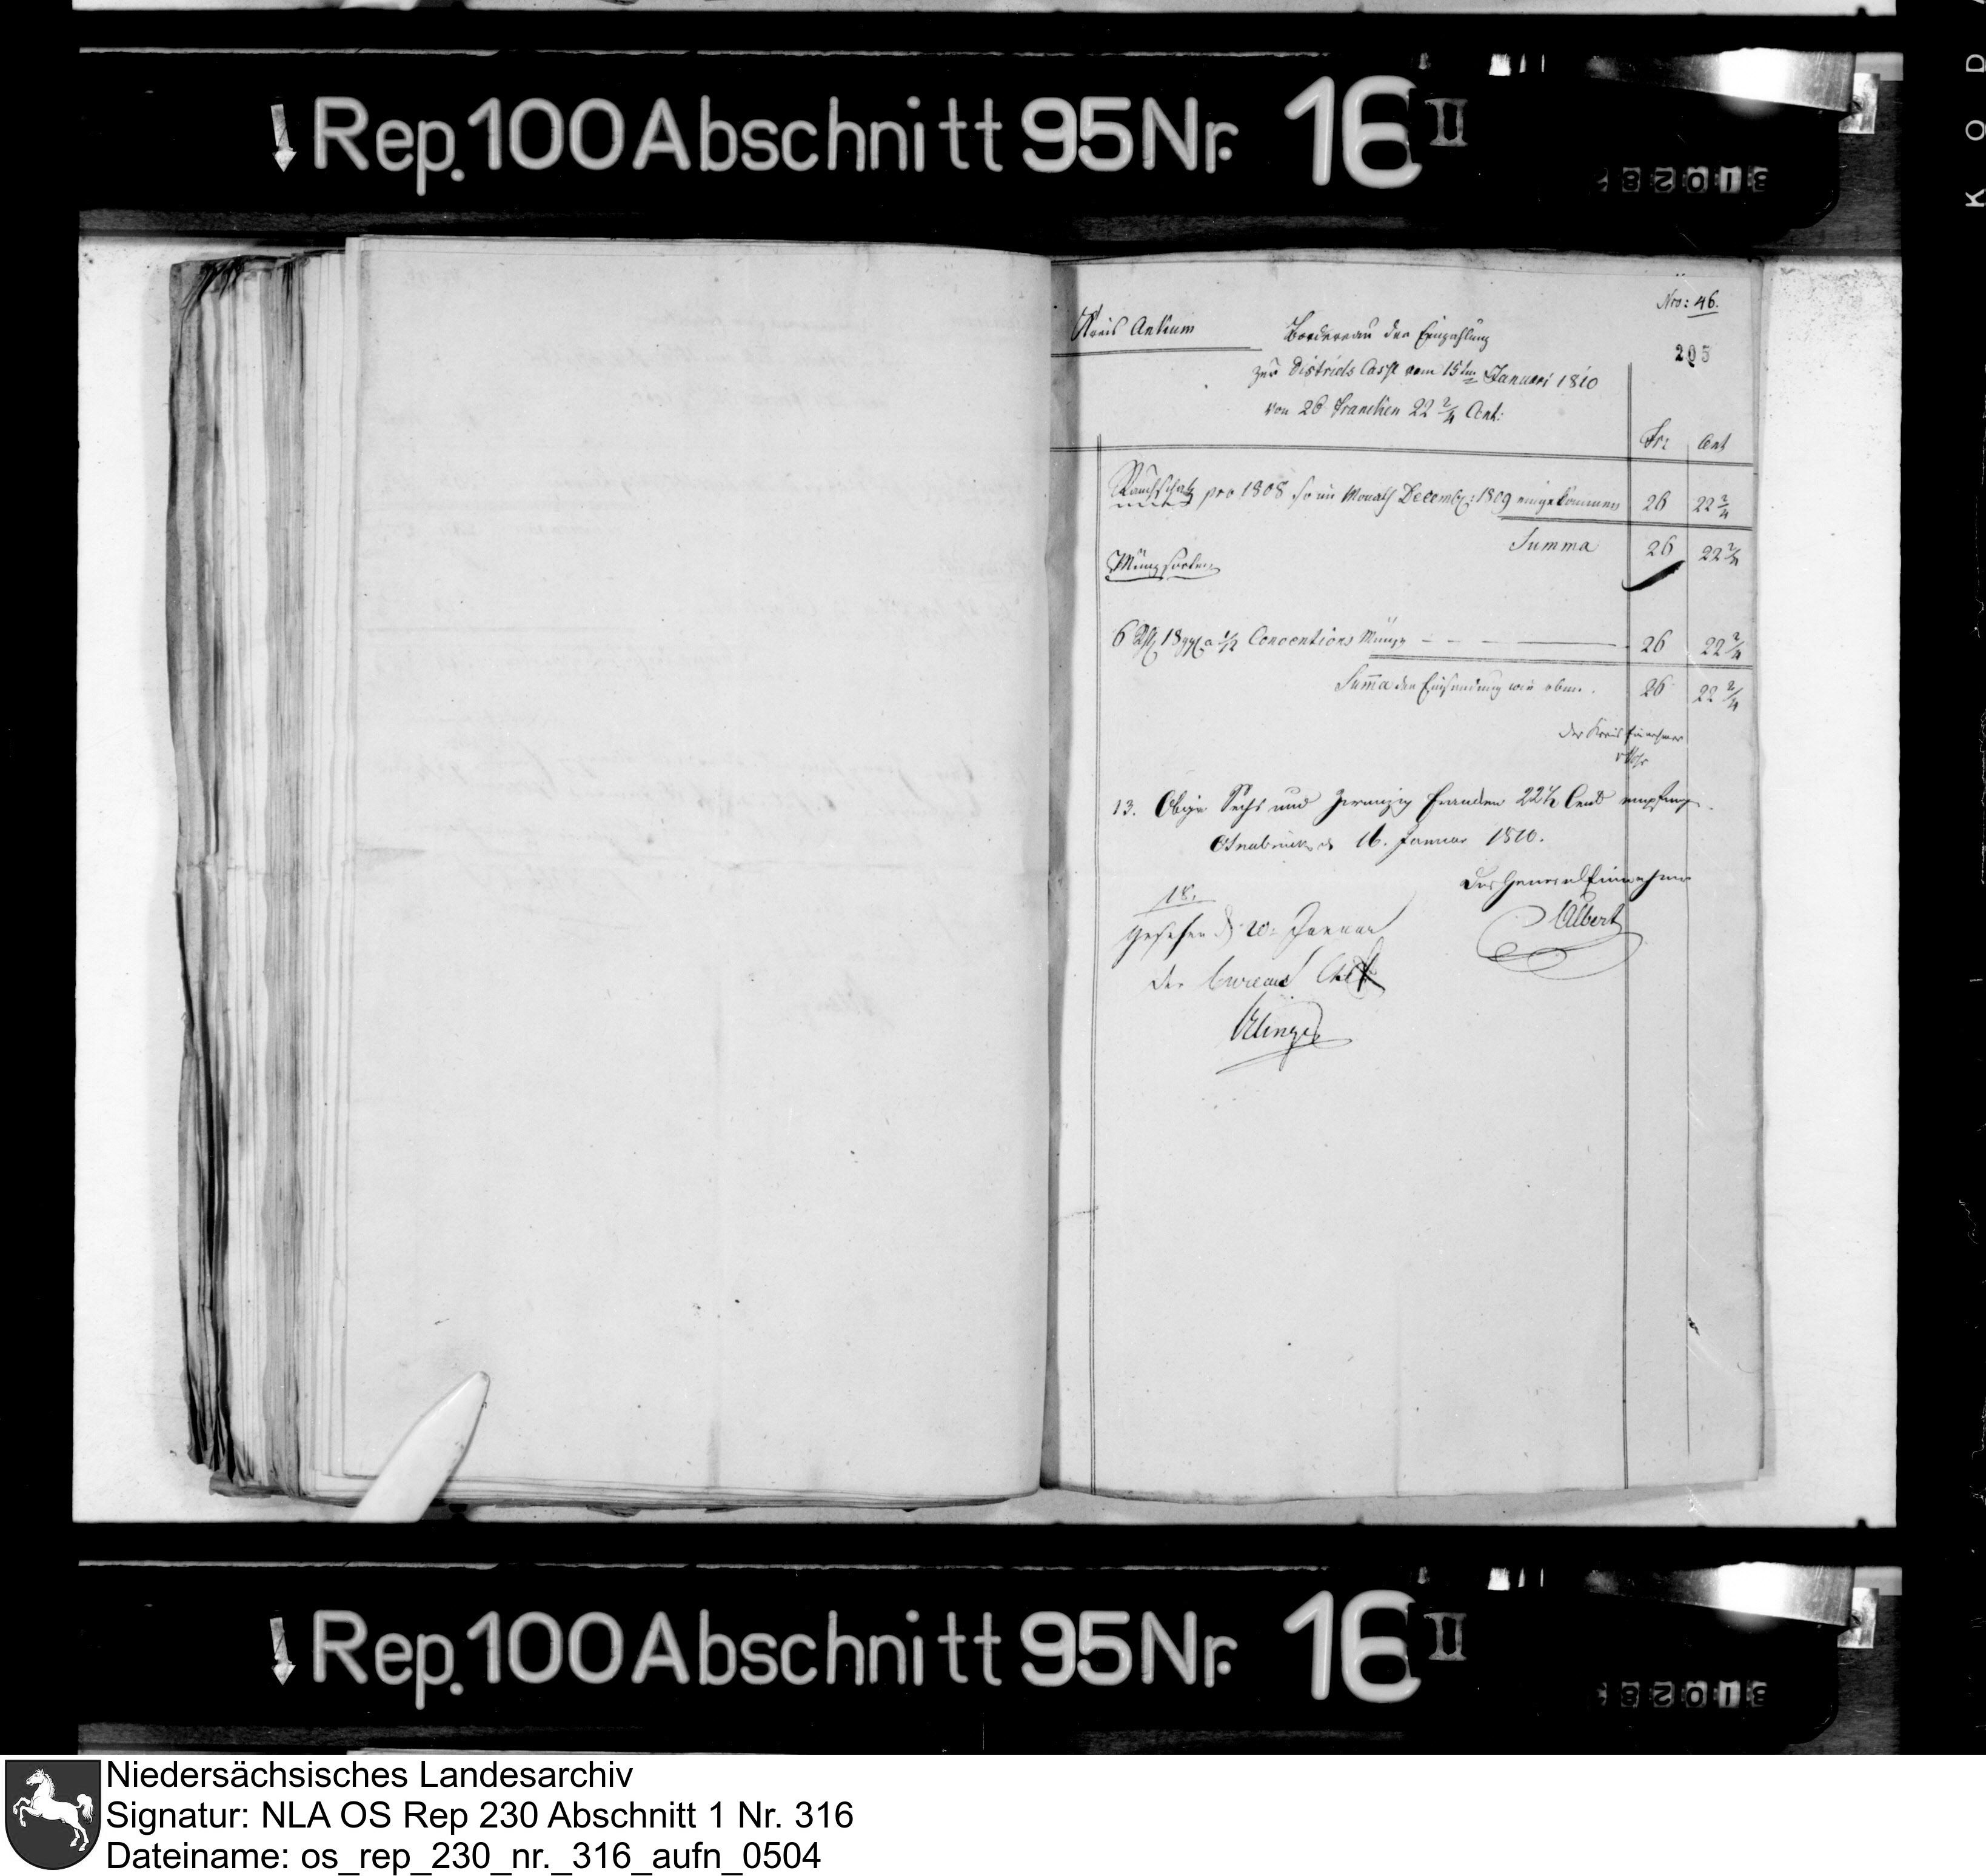 K O D
Rep. 100 Abschnitt 95 Nr. 16 II
Nro: 46.
205
Kreis Ankum
Bordereau der Einzahlung
zur Districts Casse vom 15ten Januari 1810
von 26 Francken 22 2/4 Cent:
Fr: Cent
Rauchschatz pro 1808 so im Monath Decembr: 1809 eingekommen 26 22 2/4
Summa 26 22 2/4
Münzsorten
6 Rth 18 ggr a 1/12 Conventions Münze - - - 26 22 2/4
Summa der Einsendung wie oben. 26 22 2/4
Der Kreis Einnehmer
13. Obige Sechs und Zwanzig Franken 22 1/2 Cent empfangen.
Osnabrück d 16. Januar 1810.
Der General Einnehmer
Albert
18.
Gesehen d 20. Januar
Der Bureau Chef
Rep. 100 Abschnitt 95 Nr. 16 II
Niedersächsisches Landesarchiv
Signatur: NLA OS Rep 230 Abschnitt 1 Nr. 316
Dateiname: os_rep_230_nr._316_aufn_0504